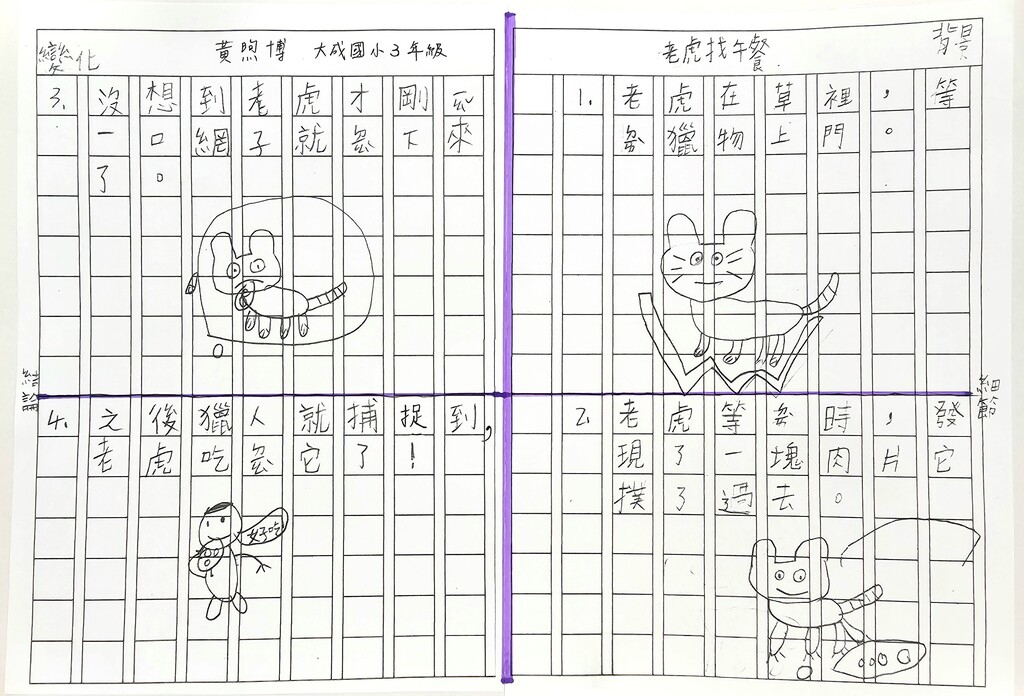 背景
老虎找午餐
1. 老虎在草裡,等
獵物上門。
細節
2. 老虎等時,發
現了一塊肉片它
撲了過去。
變化
黃煦博 大成國小3年級
3. 沒想到老虎才剛
一口網子就下來
了。
結論
4. 之後獵人就捕捉到,
老虎吃它了!
好吃